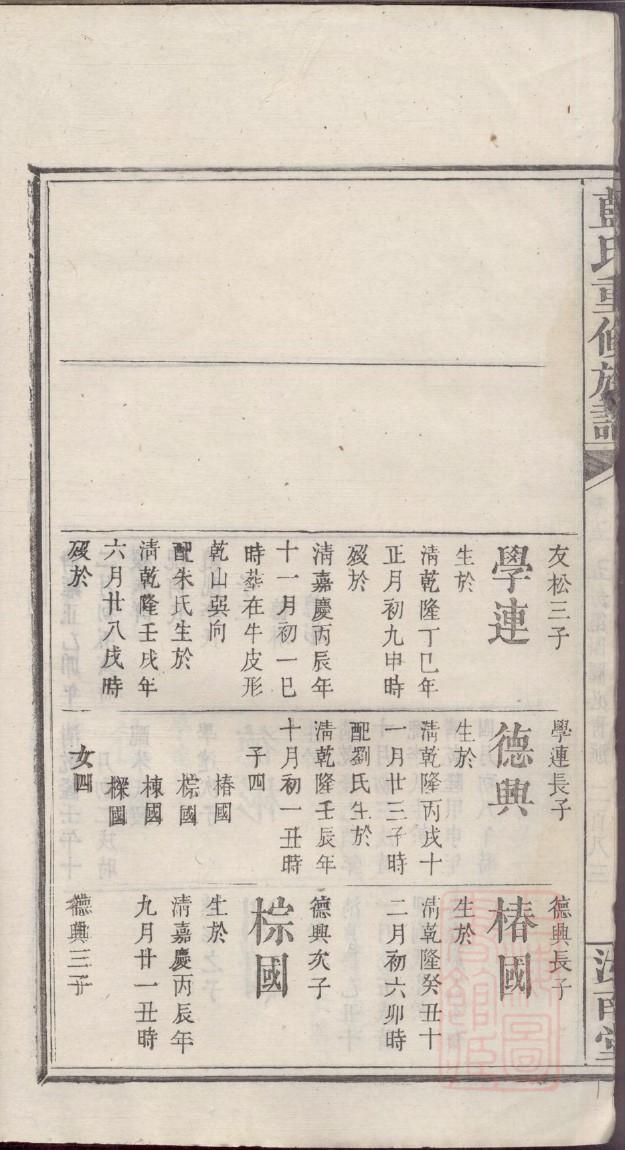 藍氏重修族譜
友松三子
學連
生於
淸乾隆丁巳年
正月初九申時
歿於
淸嘉慶丙辰年
十一月初一巳
時葬在牛皮形
乾山巽向
配朱氏生於
淸乾隆壬戌年
六月廿八戌時
歿於
學連長子
德興
生於
淸乾隆丙戌十
一月廿三子時
配劉氏生於
淸乾隆壬辰年
十月初一丑時
子四
椿國
棕國
棟國
樑國
女四
德興長子
椿國
生於
淸乾隆癸丑十
二月初六卯時
德興次子
棕國
生於
淸嘉慶丙辰年
九月廿一丑時
德興三子